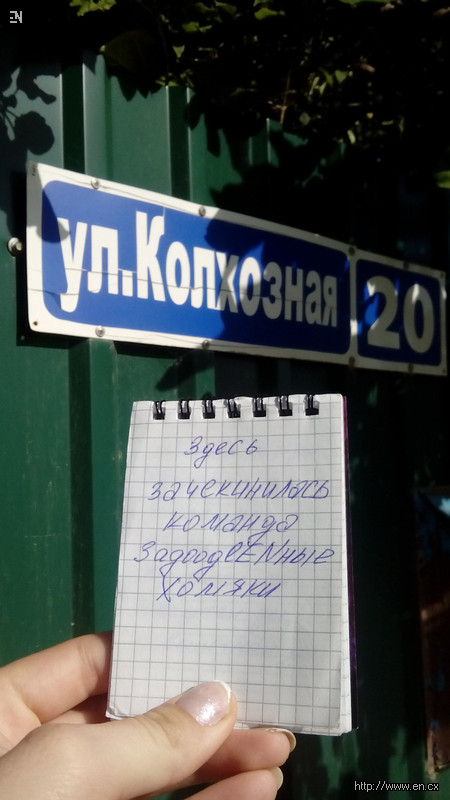 EN
ул.Колхозная 20
Здесь
зачекинилась
команда
ЗадоодвЕNные
хомяки
http://www.en.cx